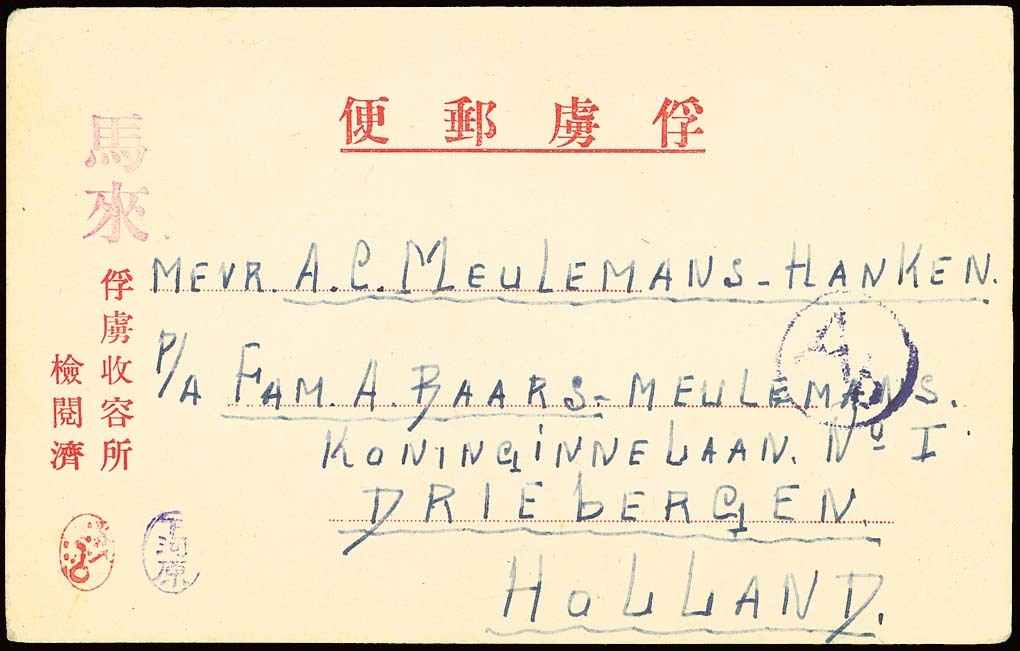 俘虜郵便
馬來
俘虜收容所
檢閱濟
MEVR. A.C. MEULEMANS-HANKEN.
P/A FAM. A. BAARS-MEULEMANS.
KONINGINNELAAN. No I
DRIEBERGEN.
HOLLAND.
河原